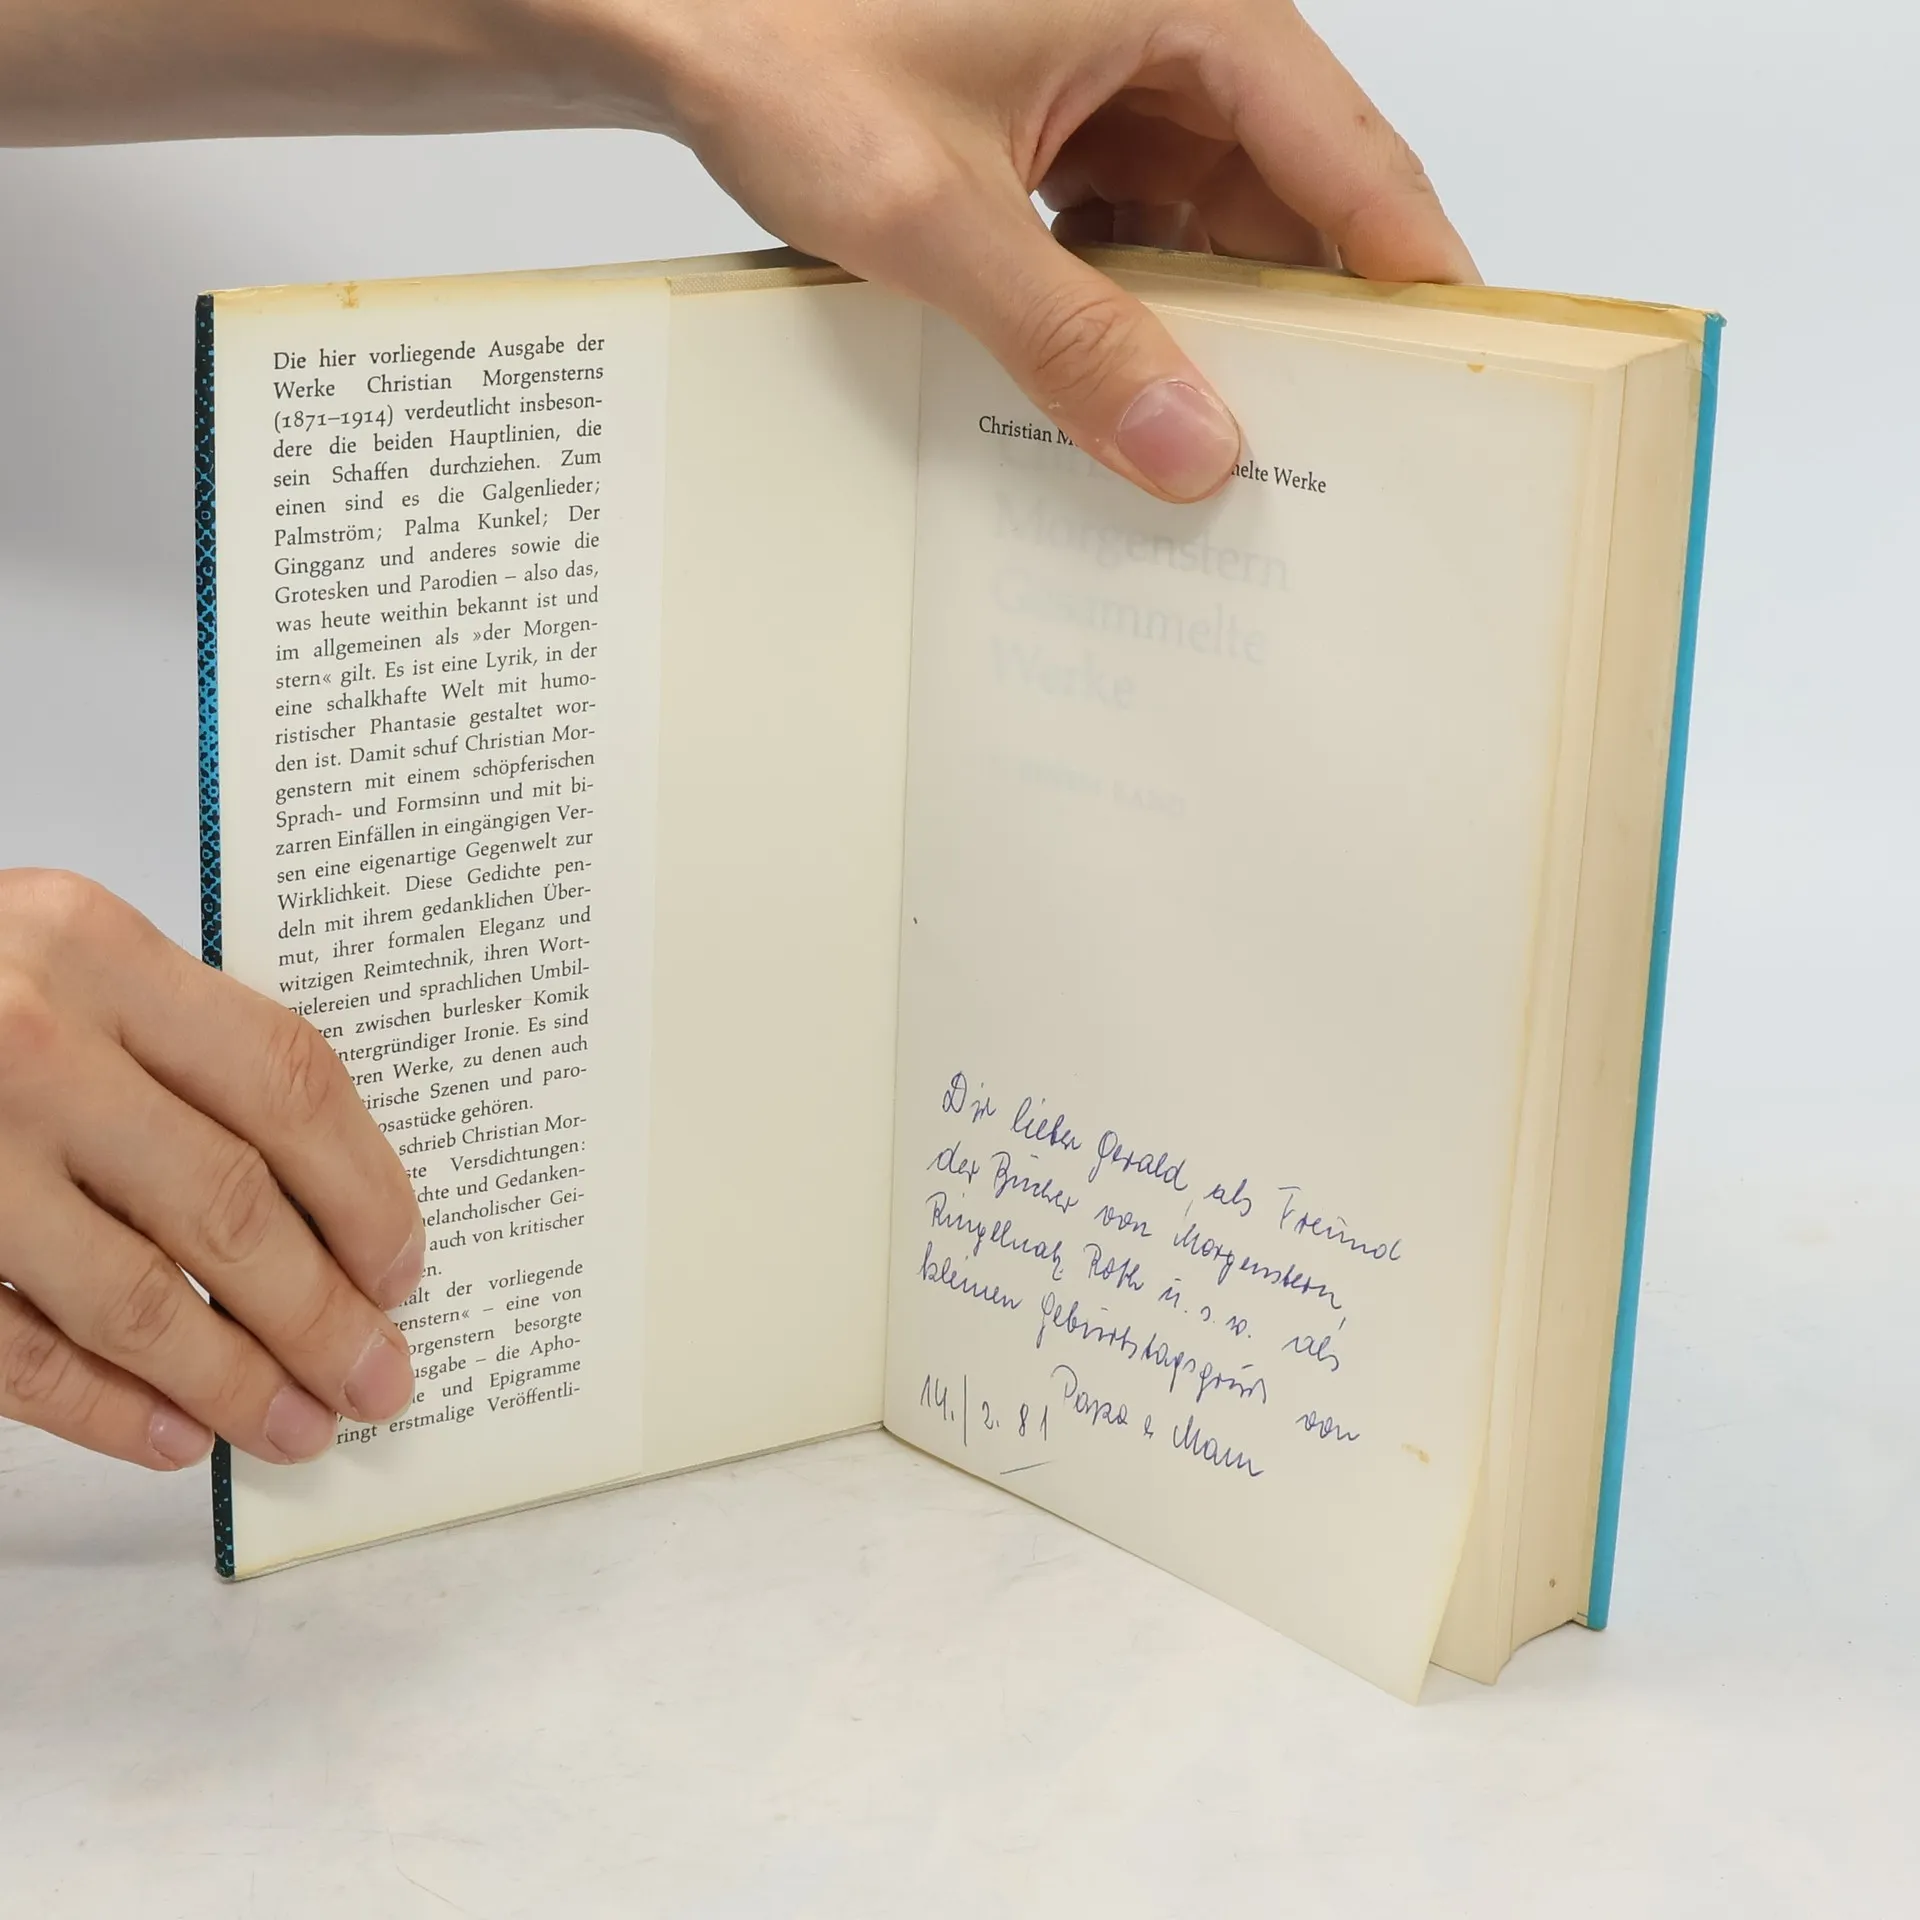 Die hier vorliegende Ausgabe der
Werke Christian Morgensterns
(1871–1914) verdeutlicht insbeson-
dere die beiden Hauptlinien, die
sein Schaffen durchziehen. Zum
einen sind es die Galgenlieder;
Palmström; Palma Kunkel; Der
Gingganz und anderes sowie die
Grotesken und Parodien – also das,
was heute weithin bekannt ist und
im allgemeinen als »der Morgen-
stern« gilt. Es ist eine Lyrik, in der
eine schalkhafte Welt mit humo-
ristischer Phantasie gestaltet wor-
den ist. Damit schuf Christian Mor-
genstern mit einem schöpferischen
Sprach- und Formsinn und mit bi-
zarren Einfällen in eingängigen Ver-
sen eine eigenartige Gegenwelt zur
Wirklichkeit. Diese Gedichte pen-
deln mit ihrem gedanklichen Über-
mut, ihrer formalen Eleganz und
witzigen Reimtechnik, ihren Wort-
pielereien und sprachlichen Umbil-
en zwischen burlesker Komik
ntergründiger Ironie. Es sind
eren Werke, zu denen auch
irische Szenen und paro-
osastücke gehören.
schrieb Christian Mor-
ste Versdichtungen:
chte und Gedanken-
melancholischer Gei-
auch von kritischer
en.
ält der vorliegende
enstern« – eine von
orgenstern besorgte
usgabe – die Apho-
e und Epigramme
ringt erstmalige Veröffentli-
Christian M
melte Werke
Morgenstern
Gesammelte
Werke
Dir lieber Gerald, als Freund
der Bücher von Morgenstern,
Ringelnatz, Roth u. s. w. als
kleinen Geburtstagsgruß von
Papa & Mam
14./2. 81